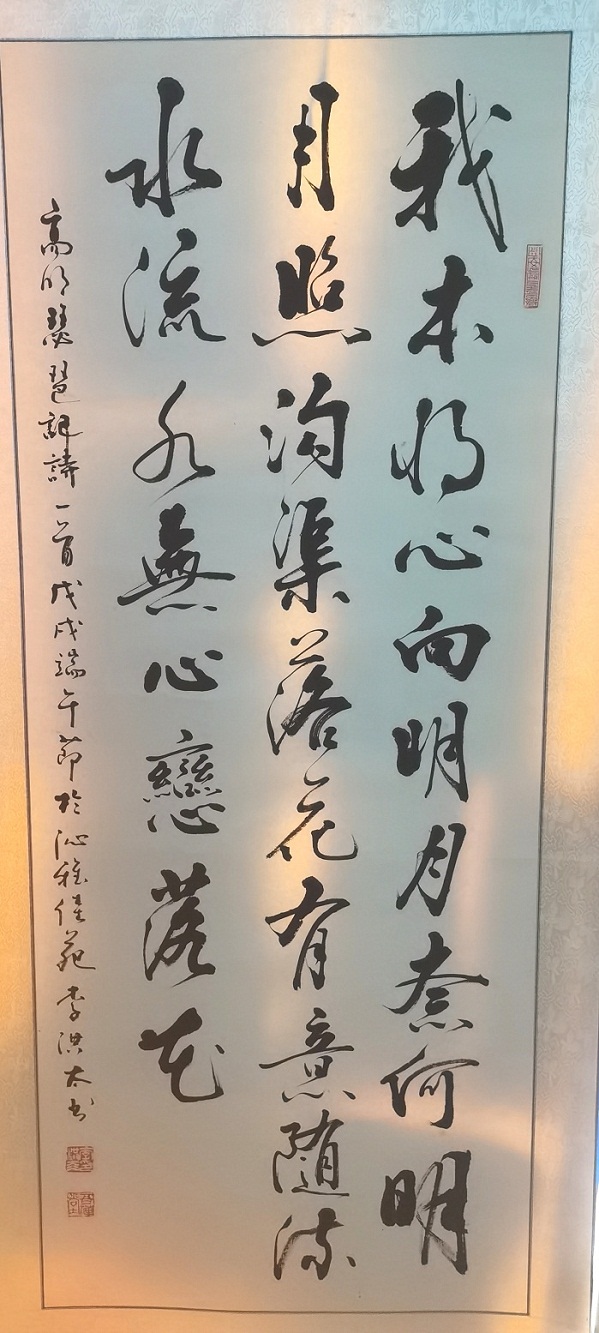 我本将心向明月奈何明
月照沟渠落花有意随流
水流水無心戀落花
高明琵琶記詩一首戊戌端午節於沁雅佳苑李洪太书